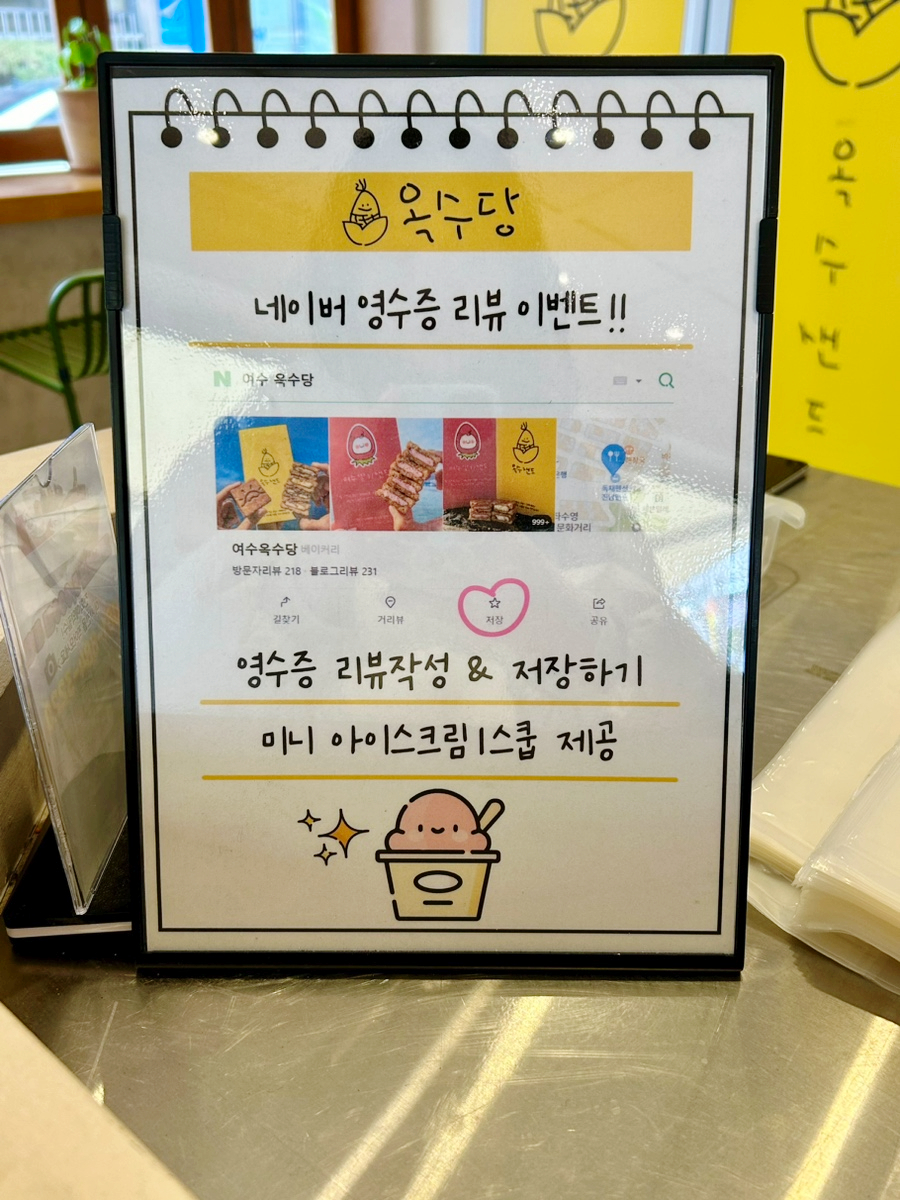 옥수당
네이버 영수증 리뷰 이벤트!!
N 여수 옥수당
옥수샌드
999+
여수옥수당 베이커리
방문자리뷰 218 · 블로그리뷰 231
길찾기 거리뷰 저장 공유
영수증 리뷰작성 & 저장하기
미니 아이스크림 1스쿱 제공
옥수샌드